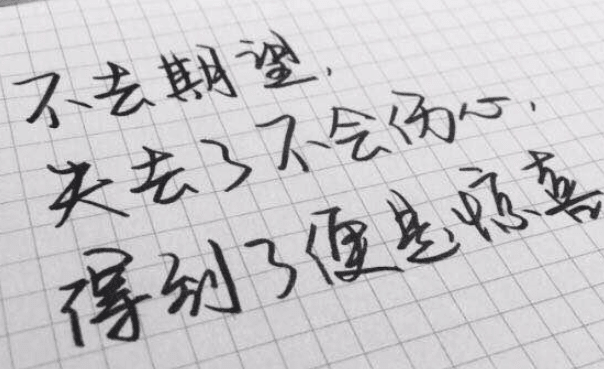 不去期望,
失去了不会伤心,
得到了便是惊喜